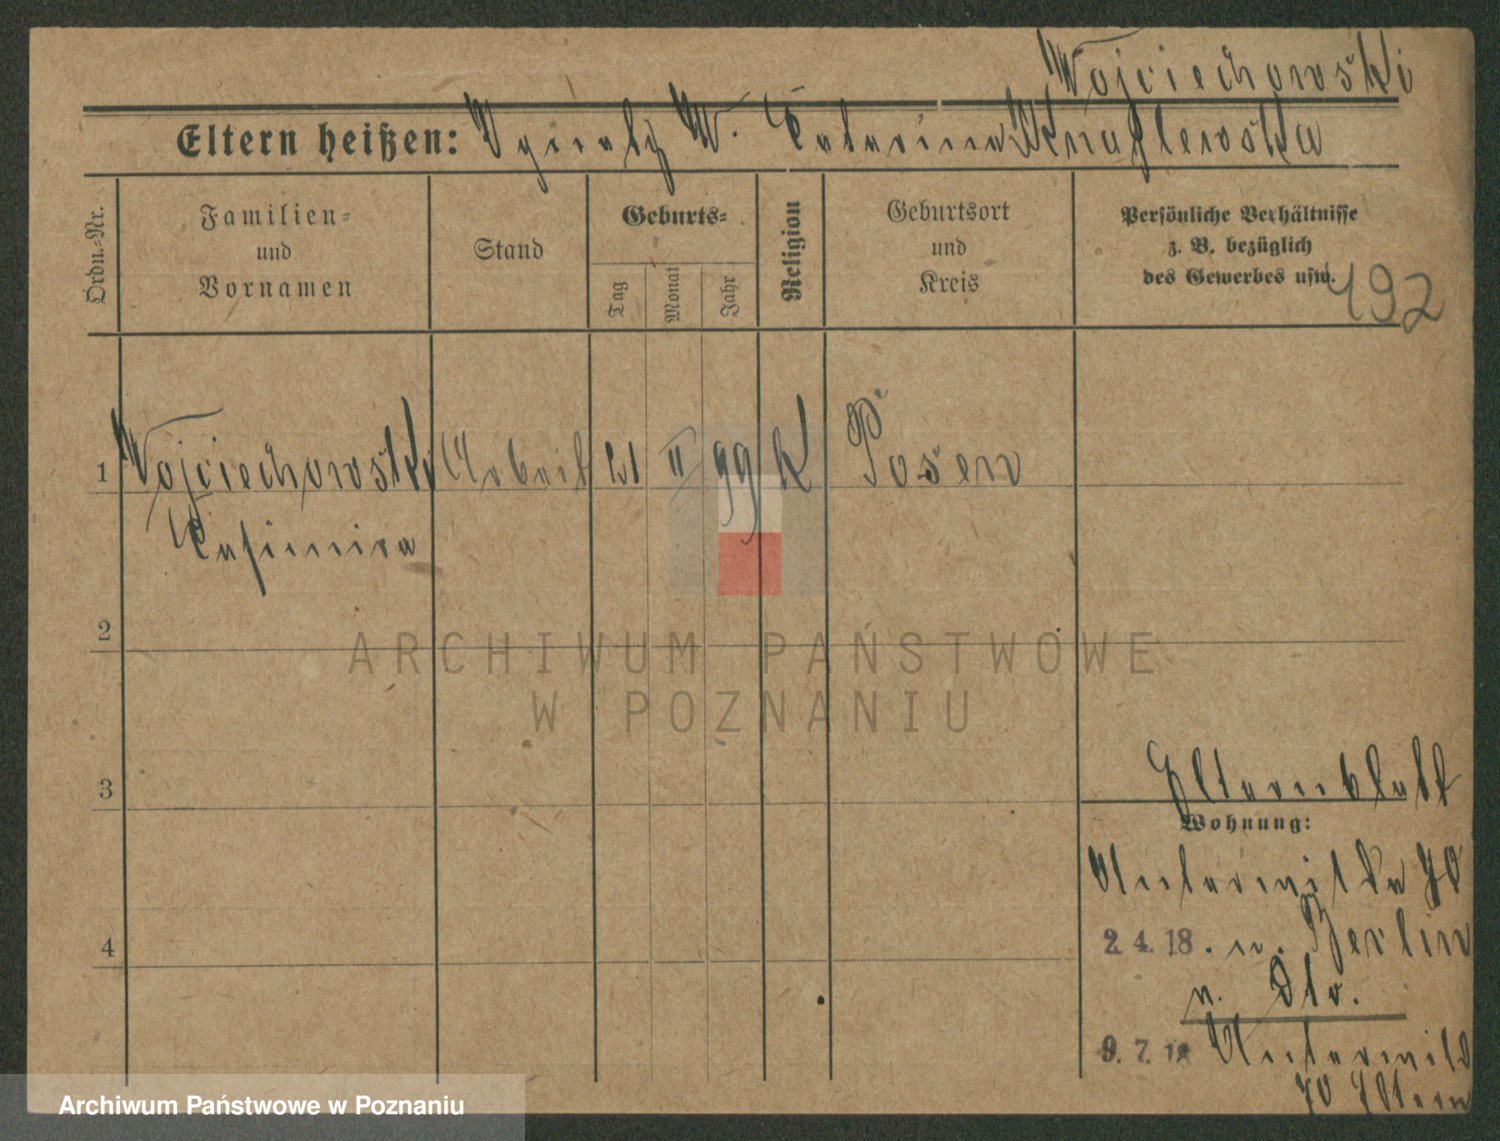 Wojciechowski
Eltern heißen: Ignatz W. Katarina Kruszlewska
Ordn.-Nr.
Familien-
und
Vornamen
Stand
Geburts-
Tag
Monat
Jahr
Religion
Geburtsort
und
Kreis
Persönliche Verhältnisse
z. B. bezüglich
des Gewerbes usw.
192
1 Wojciechowski Arbeit 21 II 99 K Posen
Kasimira
2
ARCHIWUM PAŃSTWOWE
W POZNANIU
3
Elternblatt
Wohnung:
Unterwilda 70
4
2. 4. 18. n. Berlin
v. dto.
9. 7. 18 Unterwild
70 Eltern
Archiwum Państwowe w Poznaniu